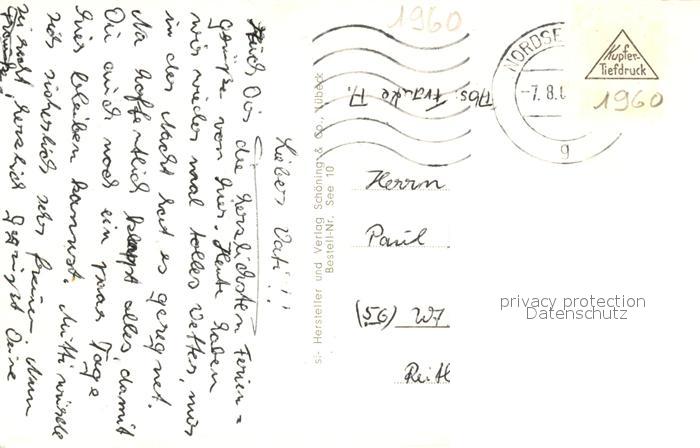 Lieber Vati!!!
Auch Dir die herzlichsten Ferien=
grüße von hier. Heute haben
wir wieder mal tolles Wetter, nur
in der Nacht hat es geregnet.
Na hoffentlich klappt alles, damit
Du auch noch ein paar Tage
hier bleiben kannst. Mutti würde
sich sicherlich sehr freuen. Nun
sei recht herzlich gegrüßt Deine
s: Hersteller und Verlag Schöning & Co., Lübeck
Bestell-Nr. See 10
1960
Abs. Frauke H.
NORDSE
-7.8.
g
Kupfer-
Tiefdruck
1960
Herrn
Paul
(56) W7
Reitl
privacy protection
Datenschutz